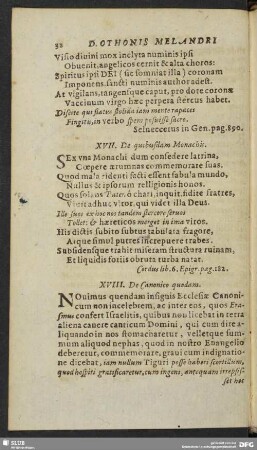 52 D. OTHONIS MELANDRI
Visio diuini mox inclyta numinis ipsi
Obuenit, angelicos cernit & alta choros:
Spiritus ipsi DEI (sic somniat illa) coronam
Imponens, sancti numinis author adest.
At vigilans, tangensque caput, pro dote coronæ
Vaccinum virgo hæc perpera stercus habet.
Discite qui flatus stolida iam mente rapaces
Fingitis, in verbo spem posuisse sacro.
Selneccerus in Gen. pag. 890.
XVII. De quibusdam Monachis.
SEx vna Monachi dum consedere latrina,
Cœpere ærumnas commemorare suas.
Quod mala ridenti secti essent fabula mundo,
Nullus & ipsorum relligionis honos.
Quos solans Pater, ô chari, inquit, fidite fratres,
Viuit adhuc vitor, qui videt illa Deus.
Ille suos ex hoc nos tandem stercore seruos
Tollet: & hæreticos merget in ima viros.
His dictis subito subtus tabulata fragore,
Atque simul putres increpuere trabes.
Subsidensque trahit miseram structura ruinam,
Et liquidis foriis obruta turba natat.
Cordus lib. 6. Epigr. pag. 182.
XVIII. De Canonico quodam.
NOuimus quendam insignis Ecclesiæ Canoni-
cum non incelebrem, ac inter eos, quos Eras-
mus confert Israelitis, quibus non licebat in terra
aliena canere canticum Domini, qui cum dite a-
liquando in nos stomacharetur, vellet que sum-
mum aliquod nephas, quod in nostro Euangelio
deberetur, commemorare, graui cum indignatio-
ne dicebat, iam nullum Tiguri posse haberi scortillum,
quod hospiti gratificaretur, cum ingens, antequam irrepsis-
set hoc
SLUB